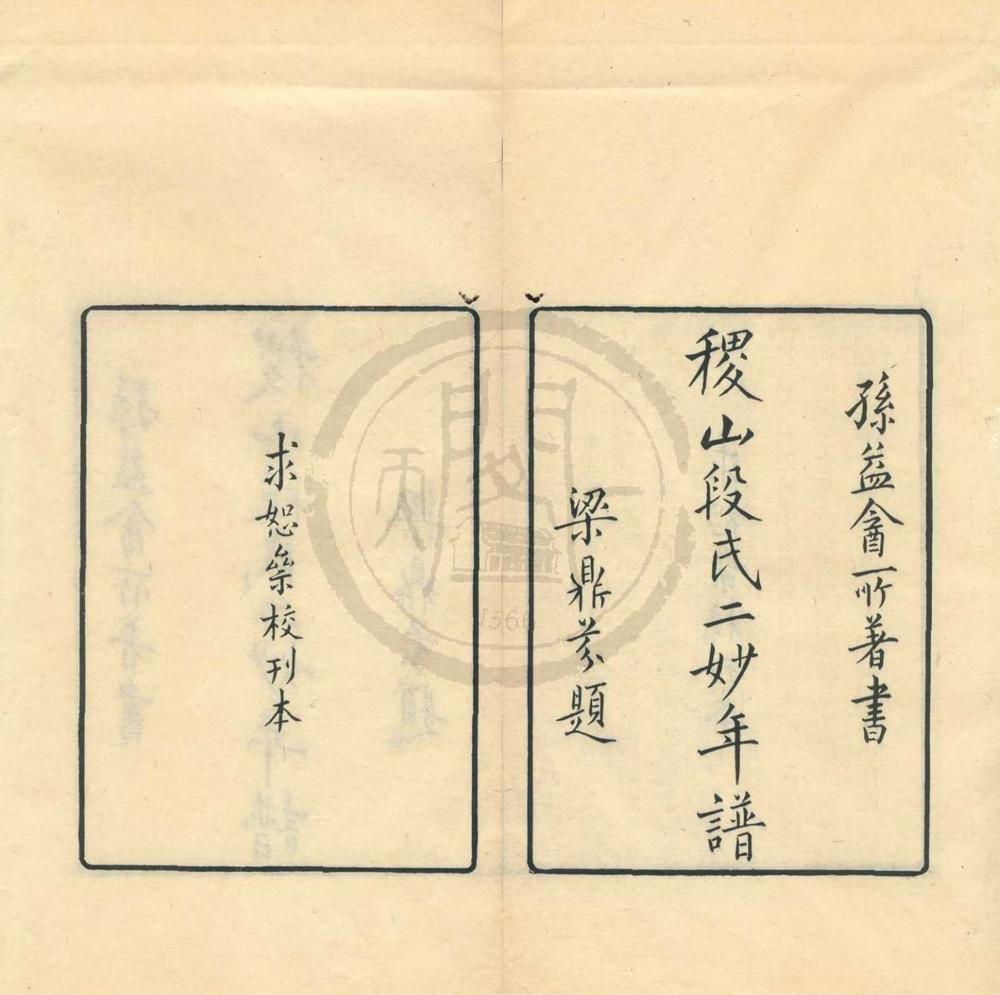 孫益盦所著書
稷山段氏二妙年譜
梁鼎芬題
求恕斋校刊本
1566